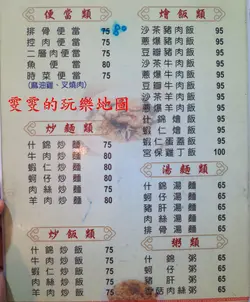 便當類
排骨便當 75 80
控肉便當 75
二層肉便當 75
魚便當 80
時菜便當 75
(麻油雞、叉燒肉)
雯雯的玩樂地圖
炒麵類
什錦炒麵 75
牛肉炒麵 80
蝦仁炒麵 80
蚵仔炒麵 80
肉絲炒麵 75
羊肉炒麵 80
炒飯類
什錦炒飯 75
牛肉炒飯 75
蝦仁炒飯 75
肉絲炒飯 75
羊肉炒飯 75
燴飯類
沙茶豬肉飯 95
蔥爆豬肉飯 95
豆瓣豬肉飯 95
沙茶牛肉飯 95
蔥爆牛肉飯 95
豆瓣牛肉飯 95
沙茶羊肉飯 95
蔥爆羊肉飯 95
什錦燴飯 95
蝦仁燴飯 95
蝦仁蛋蓋飯 95
宮保雞丁飯 95
湯麵類
什錦湯麵 65
蚵仔湯麵 65
豬肝湯麵 65
肉絲湯麵 65
排骨湯麵 75
粥類
什錦粥 65
蚵仔粥 65
豬肝粥 65
香菇肉絲粥 65